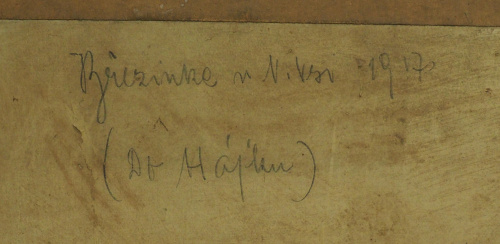 Březinka u N. Vsi 1917
(Do Hájku)